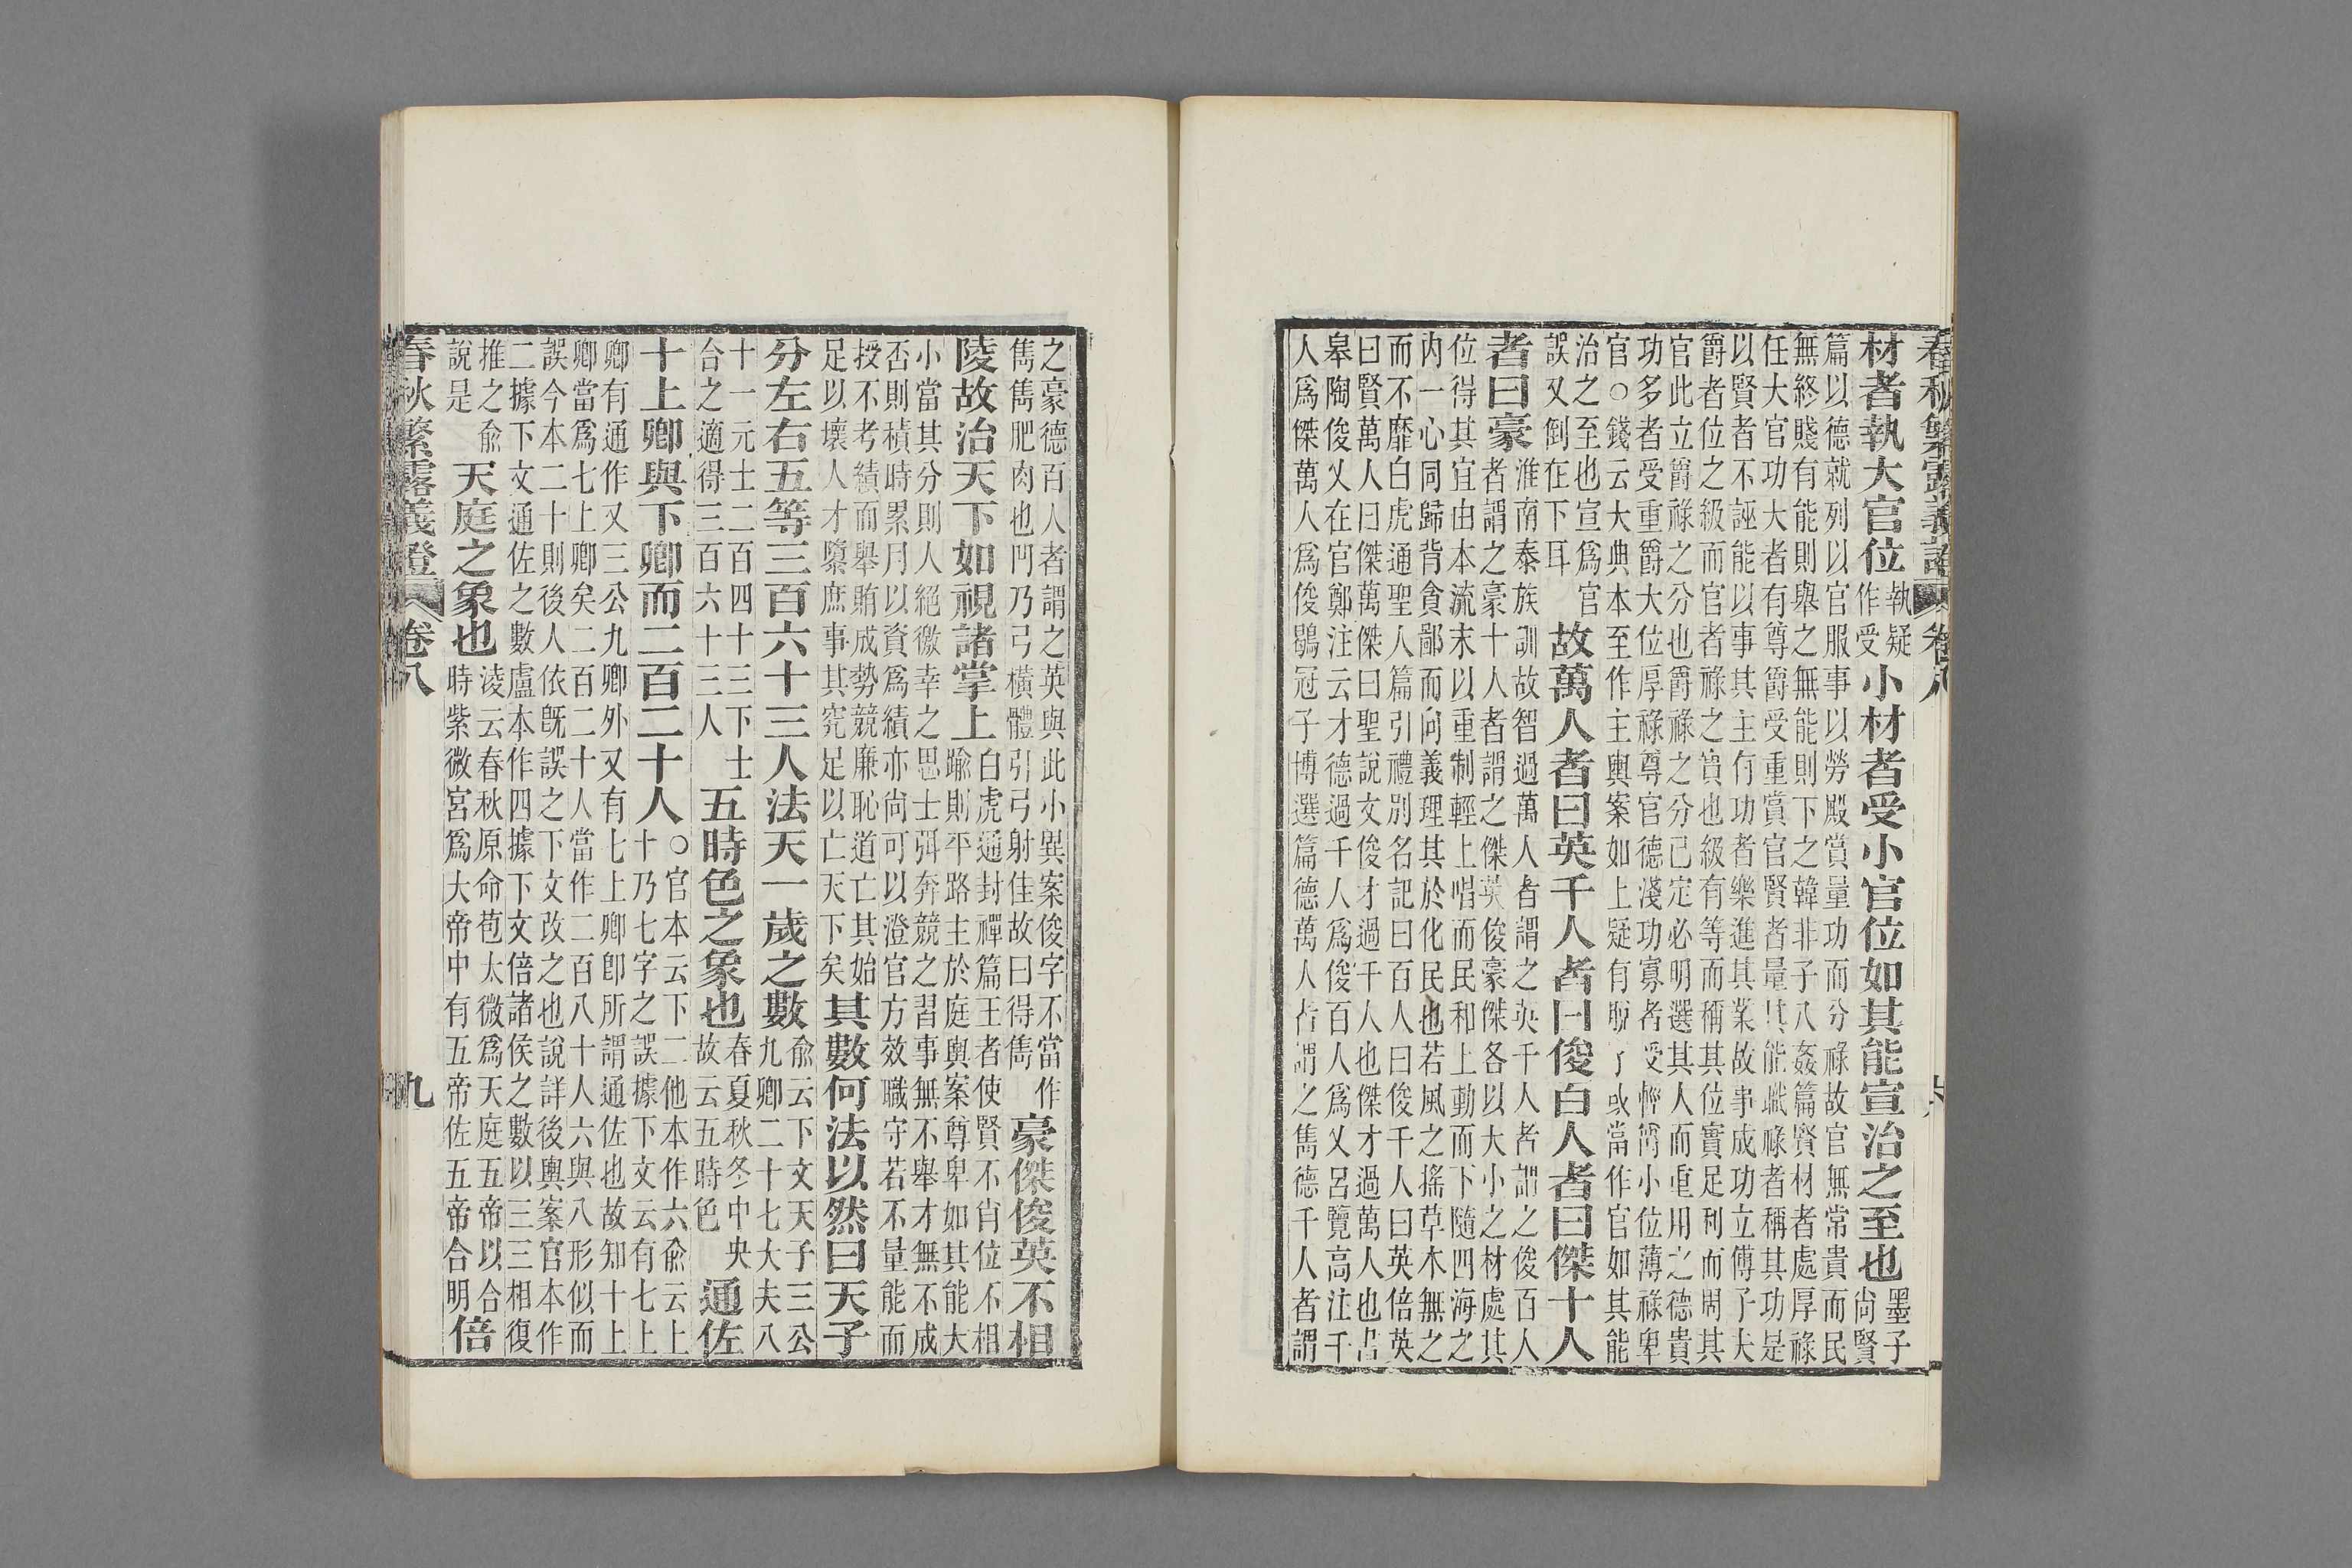 春秋繁露義證 卷八
材者執大官位執疑作受小材者受小官位如其能宣治之至也墨子尚賢
篇以德就列以官服事以勞殿賞量功而分祿故官無常貴而民
無終賤有能則舉之無能則下之韓非子八姦篇賢材者處厚祿
任大官功大者有尊爵受重賞官賢者量其能賦祿者稱其功是
以賢者不誣能以事其主有功者樂進其業故事成功立傅子夫
爵者位之級而官者祿之實也級有等而稱其位實足利而周其
官此立爵祿之分也爵祿之分已定必明選其人而重用之德貴
功多者受重爵大位厚祿尊官德淺功寡者受輕爵小位薄祿卑
官○錢云大典本至作主輿案如上疑有脫了或當作官如其能
治之至也宣爲官誤又倒在下耳故萬人者曰英千人者曰俊百人者曰傑十人
者曰豪淮南泰族訓故智過萬人者謂之英千人者謂之俊百人者謂之豪十人者謂之傑英俊豪傑各以大小之材處其
位得其宜由本流末以重制輕上唱而民和上動而下隨四海之
内一心同歸背貪鄙而向義理其於化民也若風之搖草木無之
而不靡白虎通聖人篇引禮別名記曰百人曰俊千人曰英倍英
曰賢萬人曰傑萬傑曰聖說文俊才過千人也傑才過萬人也書
皋陶俊乂在官鄭注云才德過千人爲俊百人爲乂呂覽高注千
人爲傑萬人爲俊鶡冠子博選篇德萬人者謂之雋德千人者謂
之豪德百人者謂之英與此小異案俊字不當作雋雋肥肉也冂乃弓橫體引弓射隹故曰得雋豪傑俊英不相
陵故治天下如視諸掌上白虎通封禪篇王者使賢不肖位不相踰則平路主於庭輿案尊卑如其能大
小當其分則人絕徼幸之思士弭奔競之習事無不舉才無不成
否則積時累月以資爲績亦尚可以澄官方效職守若不量能而
授不考績而舉賄成勢競廉恥道亡其始足以壞人才隳庶事其究足以亡天下矣其數何法以然曰天子
分左右五等三百六十三人法天一歲之數俞云下文天子三公九卿二十七大夫八
十一元士二百四十三下士合之適得三百六十三人五時色之象也春夏秋冬中央故云五時色通佐
十上卿與下卿而二百二十人○官本云下二他本作六俞云上十乃七字之誤據下文云有七上
卿有通作又三公九卿外又有七上卿卽所謂通佐也故知十上
卿當爲七上卿矣二百二十人當作二百八十人六與八形似而
誤今本二十則後人依旣誤之下文改之也說詳後輿案官本作
二據下文通佐之數盧本作四據下文倍諸侯之數以三三相復
推之俞說是天庭之象也淩云春秋原命苞太微爲天庭五帝以合時紫微宮爲大帝中有五帝佐五帝合明倍
春秋繁露義證 卷八 九